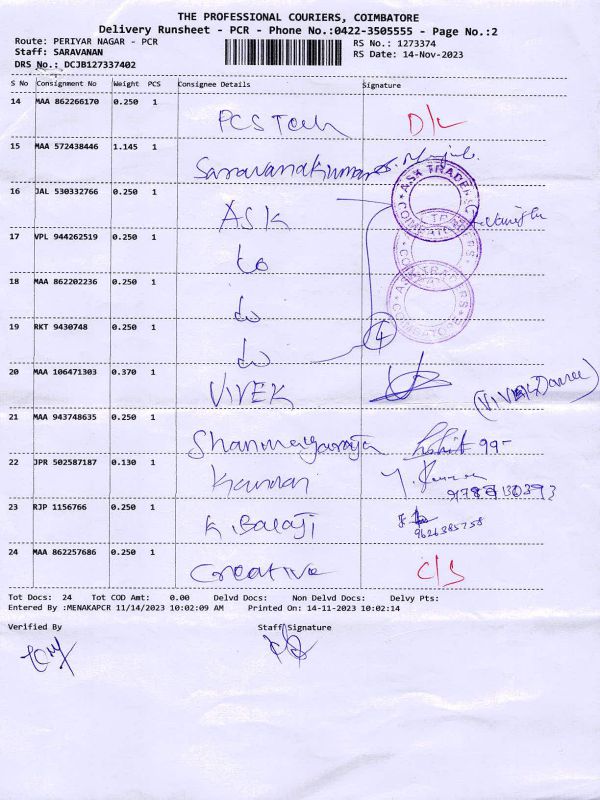 THE PROFESSIONAL COURIERS, COIMBATORE
Delivery Runsheet - PCR - Phone No.:0422-3505555 - Page No.:2
Route: PERIYAR NAGAR - PCR
Staff: SARAVANAN
DRS No.: DCJB127337402
RS No.: 1273374
RS Date: 14-Nov-2023
S No Consignment No Weight PCS Consignee Details Signature
14 MAA 862266170 0.250 1 PCS Tech D/L
15 MAA 572438446 1.145 1 Saravanakumar
16 JAL 530332766 0.250 1 ASK
ASK TRADERS COIMBATORE
17 VPL 944262519 0.250 1 to
18 MAA 862202236 0.250 1 do
19 RKT 9430748 0.250 1 do 4
20 MAA 106471303 0.370 1 VIVEK
21 MAA 943748635 0.250 1 Shanmugaraja 99-
22 JPR 502587187 0.130 1 Kannan
23 RJP 1156766 0.250 1 K. Balaji 9626385758
24 MAA 862257686 0.250 1 Creative C/S
Tot Docs: 24 Tot COD Amt: 0.00 Delvd Docs: Non Delvd Docs: Delvy Pts:
Entered By :MENAKAPCR 11/14/2023 10:02:09 AM Printed On: 14-11-2023 10:02:14
Verified By Staff Signature